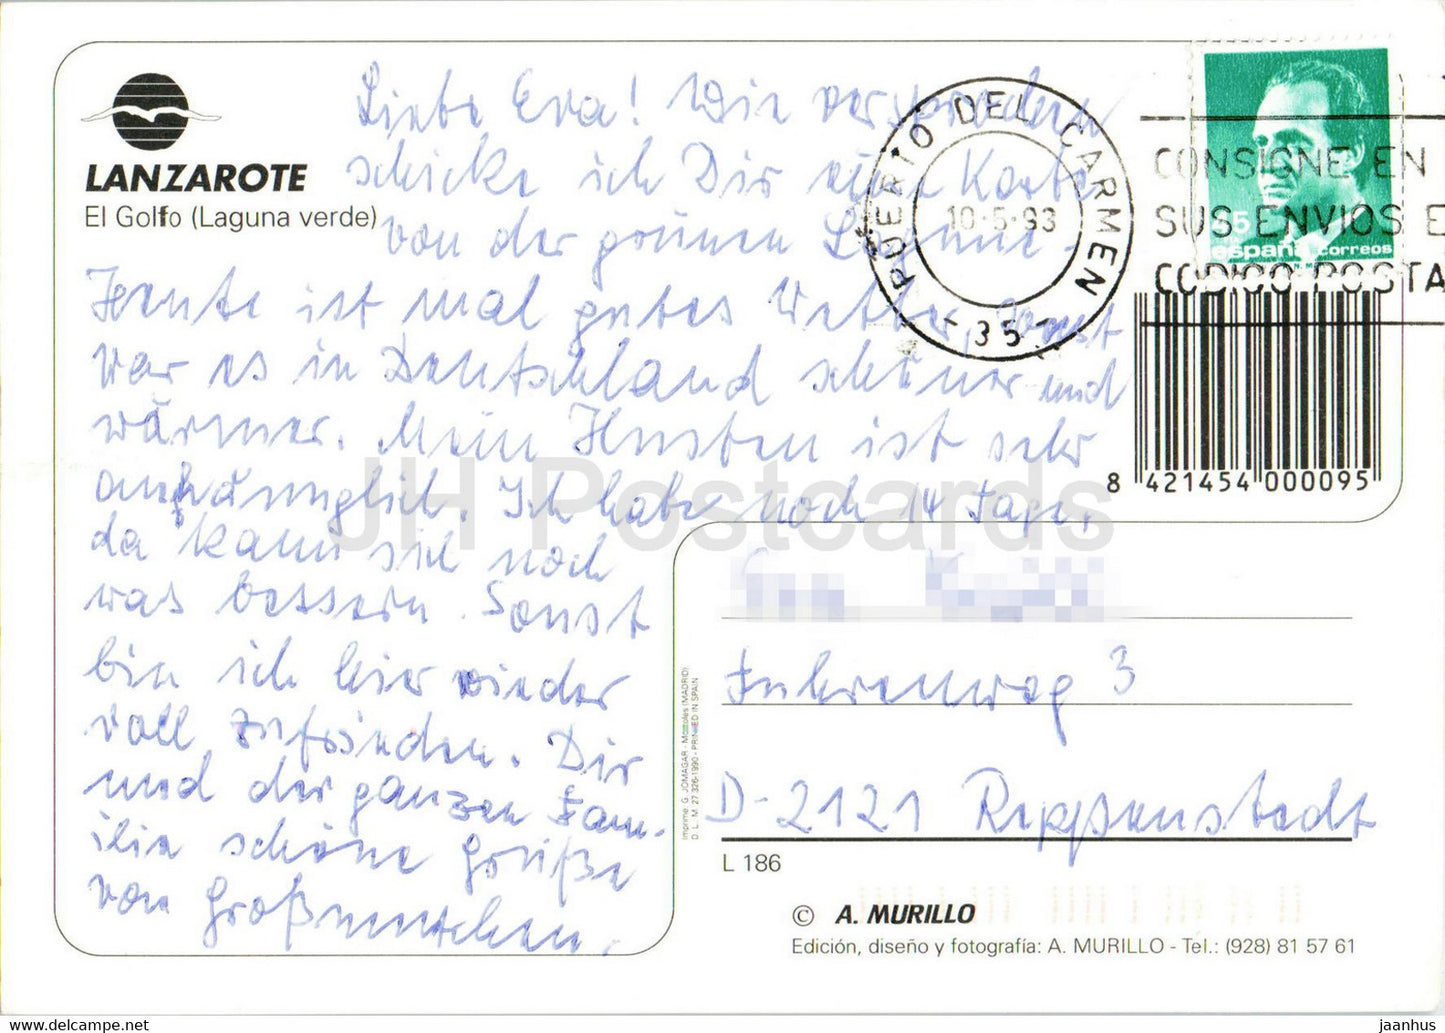 LANZAROTE
El Golfo (Laguna verde)
Liebe Eva! Wie versprochen
schicke ich Dir eine Karte
von der grünen Lagune.
Heute ist mal gutes Wetter, sonst
war es in Deutschland schöner und
wärmer. Mein Husten ist sehr
anhänglich. Ich habe noch 14 Tage,
da kann sich noch
was bessern. Sonst
bin ich hier wieder
voll zufrieden. Dir
und der ganzen Fam-
ilie schöne Grüße
von Großmutchen.
PUERTO DEL CARMEN
10·5·93
-35-
CONSIGNE EN
SUS ENVIOS E
CODIGO POSTA
España correos
8 421454 000095
JH Postcards
3
D-2121 Reppenstedt
Imprime: G. JOMAGAR - Mostoles (MADRID)
D. L. M. 27.326-1990 - PRINTED IN SPAIN
L 186
© A. MURILLO
Edición, diseño y fotografía: A. MURILLO - Tel.: (928) 81 57 61
jaanhus